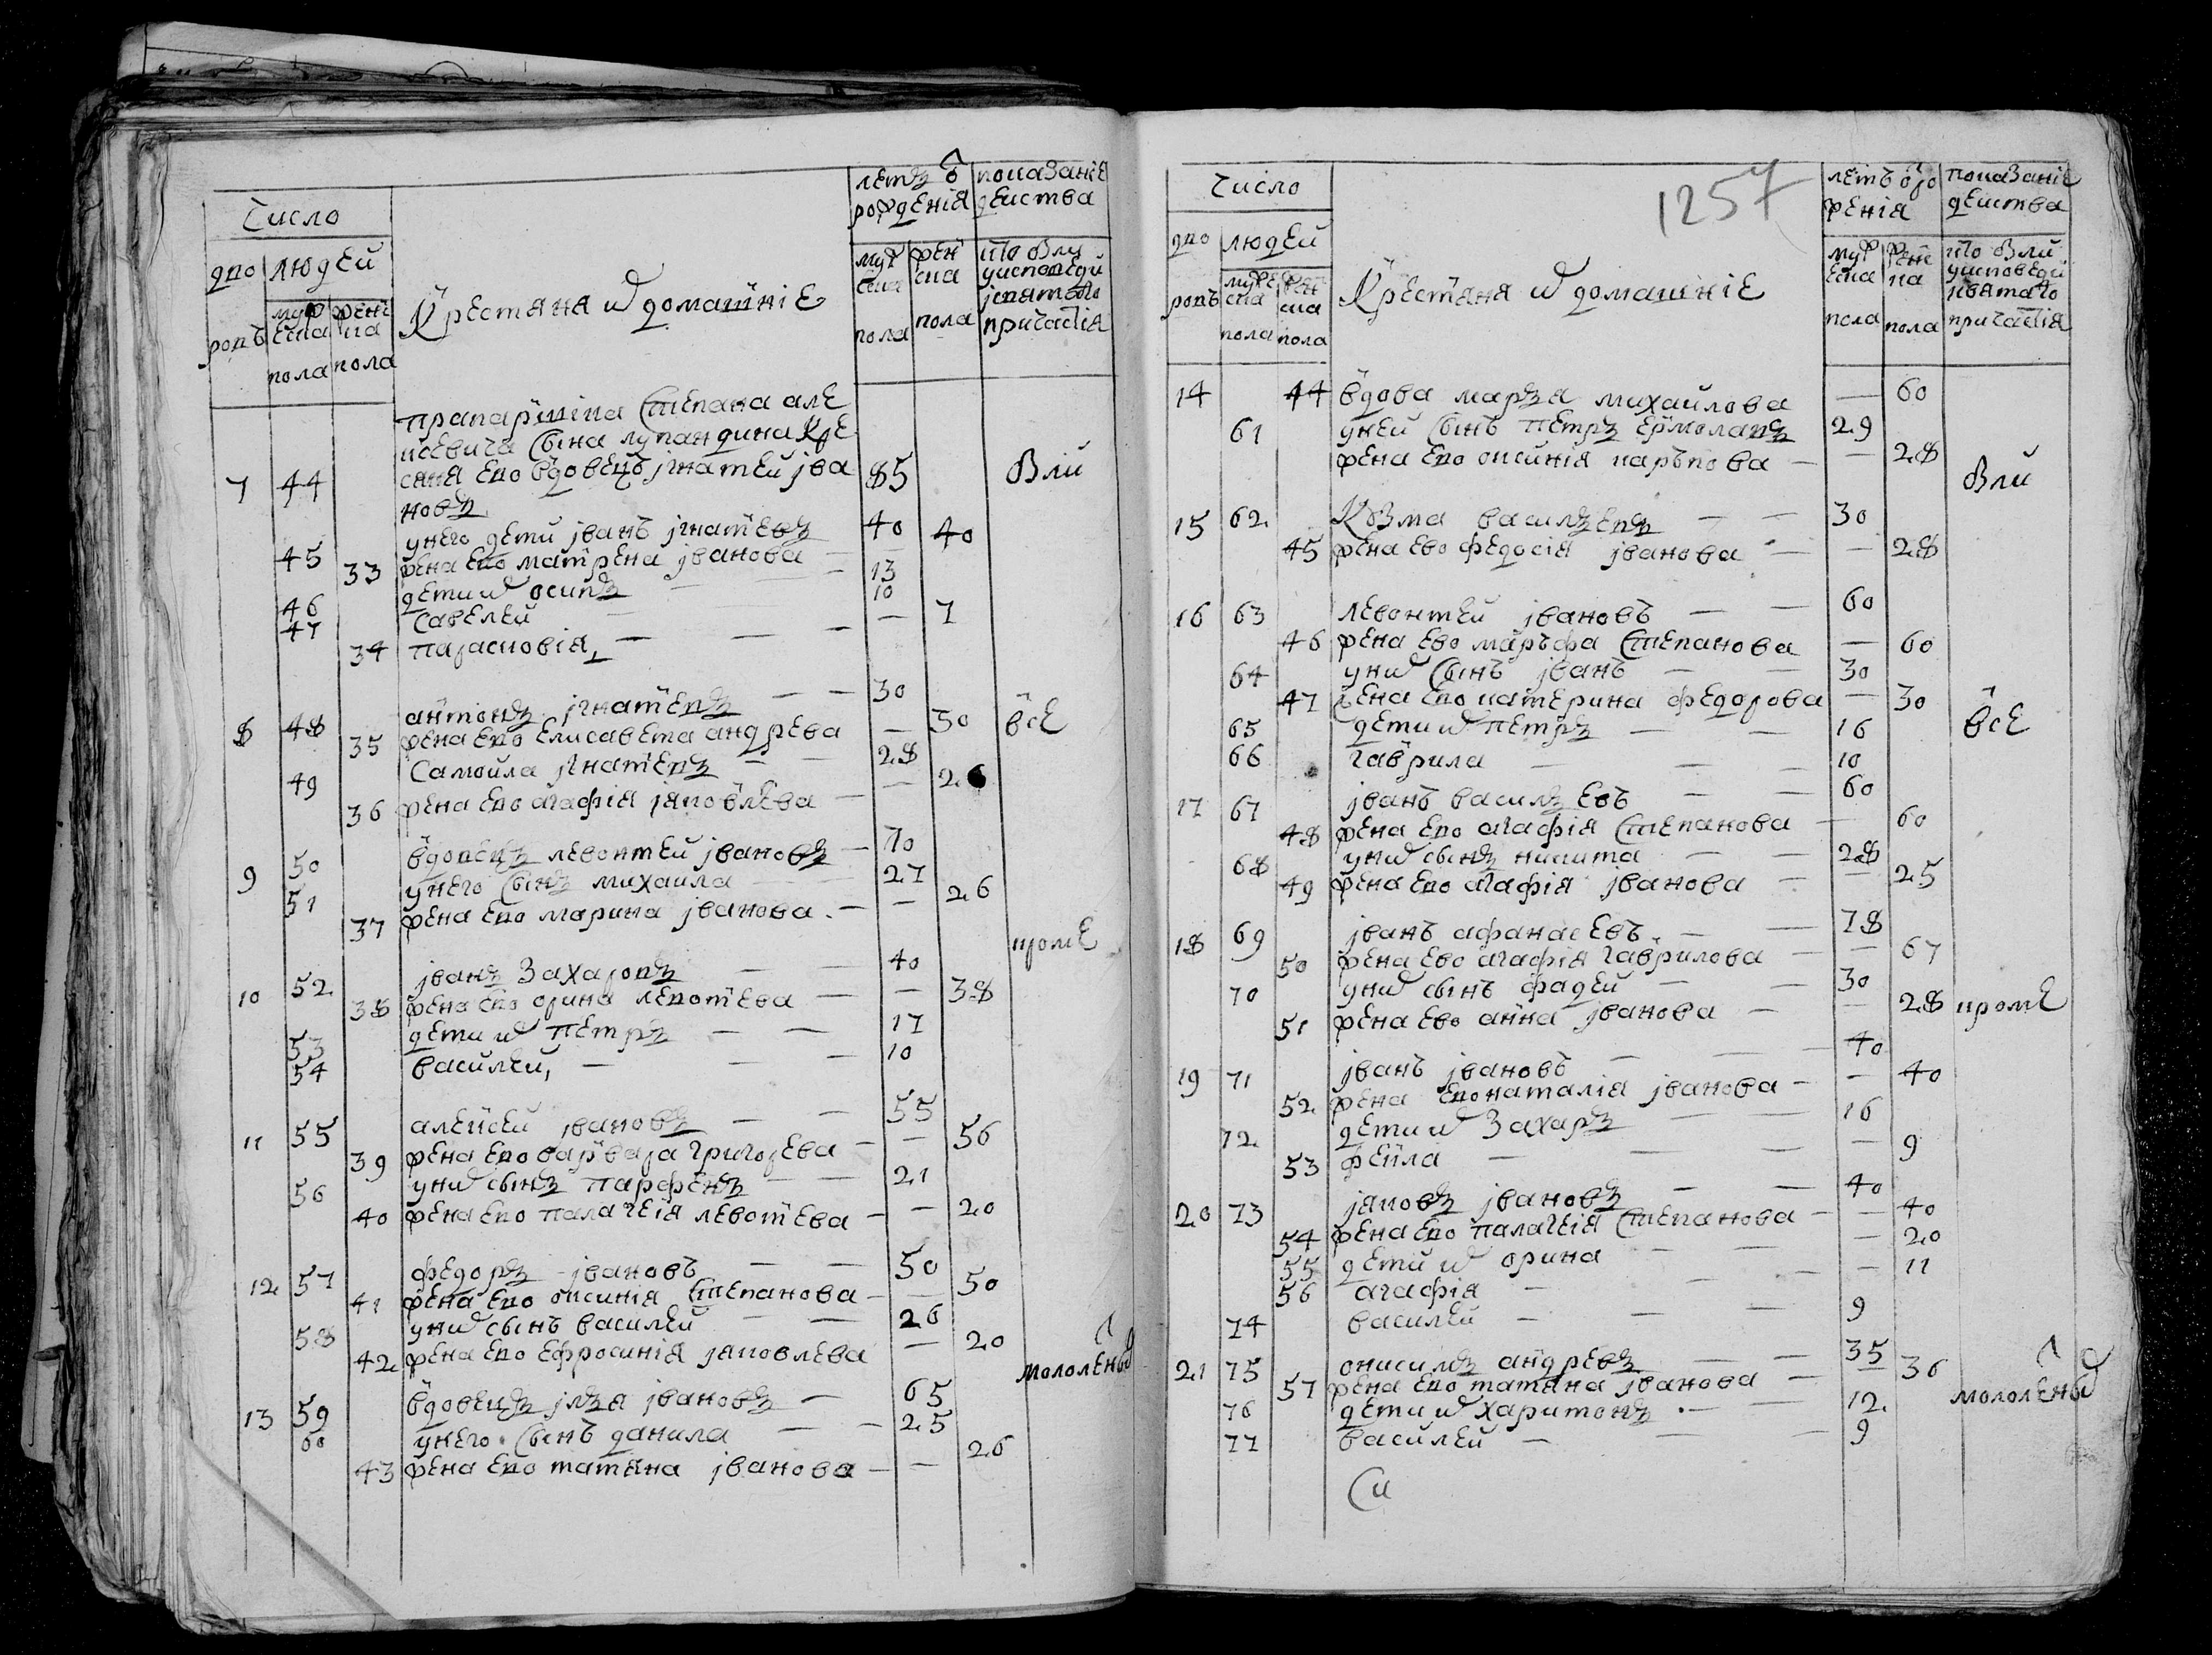 Число
дво
ровъ
людей
мужеска
пола
женска
пола
Крестяня и домашніе
летъ ѿ рожденія
мужеска
пола
женска
пола
показаніе действа
кто былъ у исповеди и святаго причастія
прапарщика Степана але
ксевича сына лупандина кре
7 44 сяня ево вдовецъ игнатей ива 85 были
новъ
45 у него дети иванъ игнатьевъ 40
33 жена ево матрена иванова — — 40
46 дети их осипъ — — 13
47 савелей — 10
34 парасковія — — — — 7
8 48 антонъ игнатьевъ — — 30
35 жена ево елисавета андрева — 30 все
49 самойла игнатьевъ — — 28
36 жена ево агафія яковлева — — 26
9 50 вдовецъ левонтей ивановъ — 70
51 у него сынъ михаила 27
37 жена ево марина иванова — — 26
кроме
10 52 иванъ захаровъ — — 40
38 жена ево орина левотева — — 38
53 дети их петръ — — 17
54 василей — — — 10
11 55 алексей ивановъ — — 55
39 жена ево варвара григорева — — 56
56 у них сынъ парфенъ — — 21
40 жена ево палагея левотева — — 20
12 57 федоръ ивановъ — — 50
41 жена ево оксинія степанова — — 50
58 у них сынъ василей — — 26
42 жена ево ефросинія яковлева — 20
мололеных
13 59 вдовецъ илья ивановъ — 65
60 у него сынъ данила — — 25
43 жена ево татяна иванова — — 26
1257
Число
дво
ровъ
людей
мужеска
пола
женска
пола
Крестяня и домашніе
летъ ѿ рожденія
мужеска
пола
женска
пола
показаніе действа
кто были у исповеди и святаго причастія
14 44 вдова марья михайлова — 60
61 у ней сынъ петръ ермолавъ 29
жена ево оксинія карпова — — 28
были
15 62 козма васильевъ — — 30
45 жена ево федосія иванова — — 28
16 63 левонтей ивановъ — — 60
46 жена ево марфа степанова — 60
64 у них сынъ иванъ — — 30
47 жена ево катерина федорова — 30
65 дети их петръ — — 16 все
66 гаврила — — — 10
17 67 иванъ васильевъ — — 60
48 жена ево агафія степанова — 60
68 у них сынъ никита — — 28
49 жена ево агафія иванова — — 25
18 69 иванъ афанасевъ — — 78
50 жена ево агафія гаврилова — — 67
70 у них сынъ фадей — — 30
51 жена ево анна иванова — — 28 кроме
19 71 иванъ ивановъ — — — 40
52 жена ево наталія иванова — — 40
72 дети их захаръ — — 16
53 фекла — — — — 9
20 73 яковъ ивановъ — — 40
54 жена ево палагея степанова — — 40
55 дети их орина — — — 20
56 агафія — — — — 11
74 василей — — — 9
21 75 онисимъ андревъ — — 35
57 жена ево татяна иванова — — 36
76 дети их харитонъ — — 12 мололеных
77 василей — — — 9